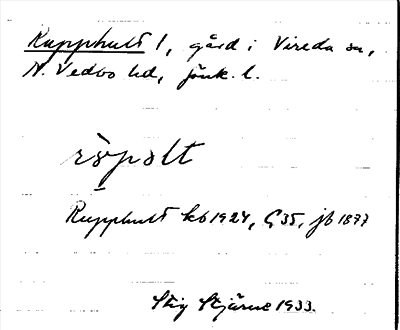 Rupphult 1, gård i Vireda sn,
N. Vedbo hd, Jönk. l.
rùpɔlt
Rupphult kb 1924, G 35, jb 1877
Stig Stjärne 1933.